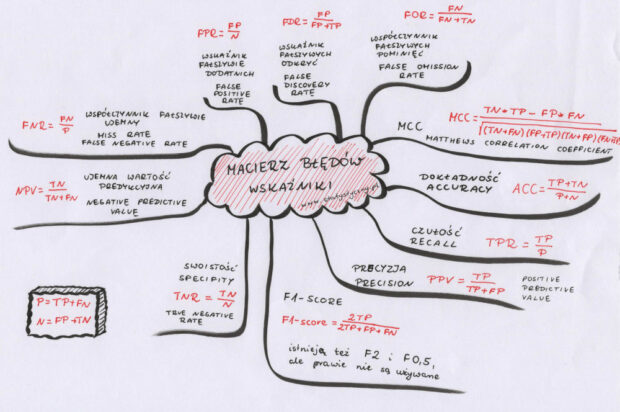 FPR = FP/N
WSKAŹNIK
FAŁSZYWIE
DODATNICH
FALSE
POSITIVE
RATE
FDR = FP/FP+TP
WSKAŹNIK
FAŁSZYWYCH
ODKRYĆ
FALSE
DISCOVERY
RATE
FOR = FN/FN+TN
WSPÓŁCZYNNIK
FAŁSZYWYCH
POMINIĘĆ
FALSE OMISSION
RATE
FNR = FN/P
WSPÓŁCZYNNIK FAŁSZYWIE
UJEMNY
MISS RATE
FALSE NEGATIVE RATE
MCC
MCC = TN*TP - FP*FN/√(TN+FN)(FP+TP)(TN+FP)(FN+TP)
MATTHEWS CORRELATION COEFFICIENT
MACIERZ BŁĘDÓW
WSKAŹNIKI
NPV = TN/TN+FN
UJEMNA WARTOŚĆ
PREDYKCYJNA
NEGATIVE PREDICTIVE
VALUE
DOKŁADNOŚĆ
ACCURACY
ACC = TP+TN/P+N
CZUŁOŚĆ
RECALL
TPR = TP/P
PRECYZJA
PRECISION
PPV = TP/TP+FP
POSITIVE
PREDICTIVE
VALUE
SWOISTOŚĆ
SPECIFITY
TNR = TN/N
TRUE NEGATIVE
RATE
F1-SCORE
F1-score = 2TP/2TP+FP+FN
istnieją też F2 i F0,5,
ale prawie nie są używane
P=TP+FN
N=FP+TN